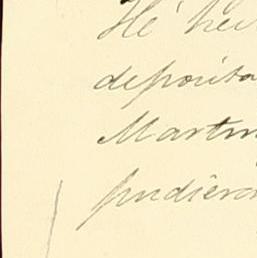 He hec
deposita
Martin
pudiero